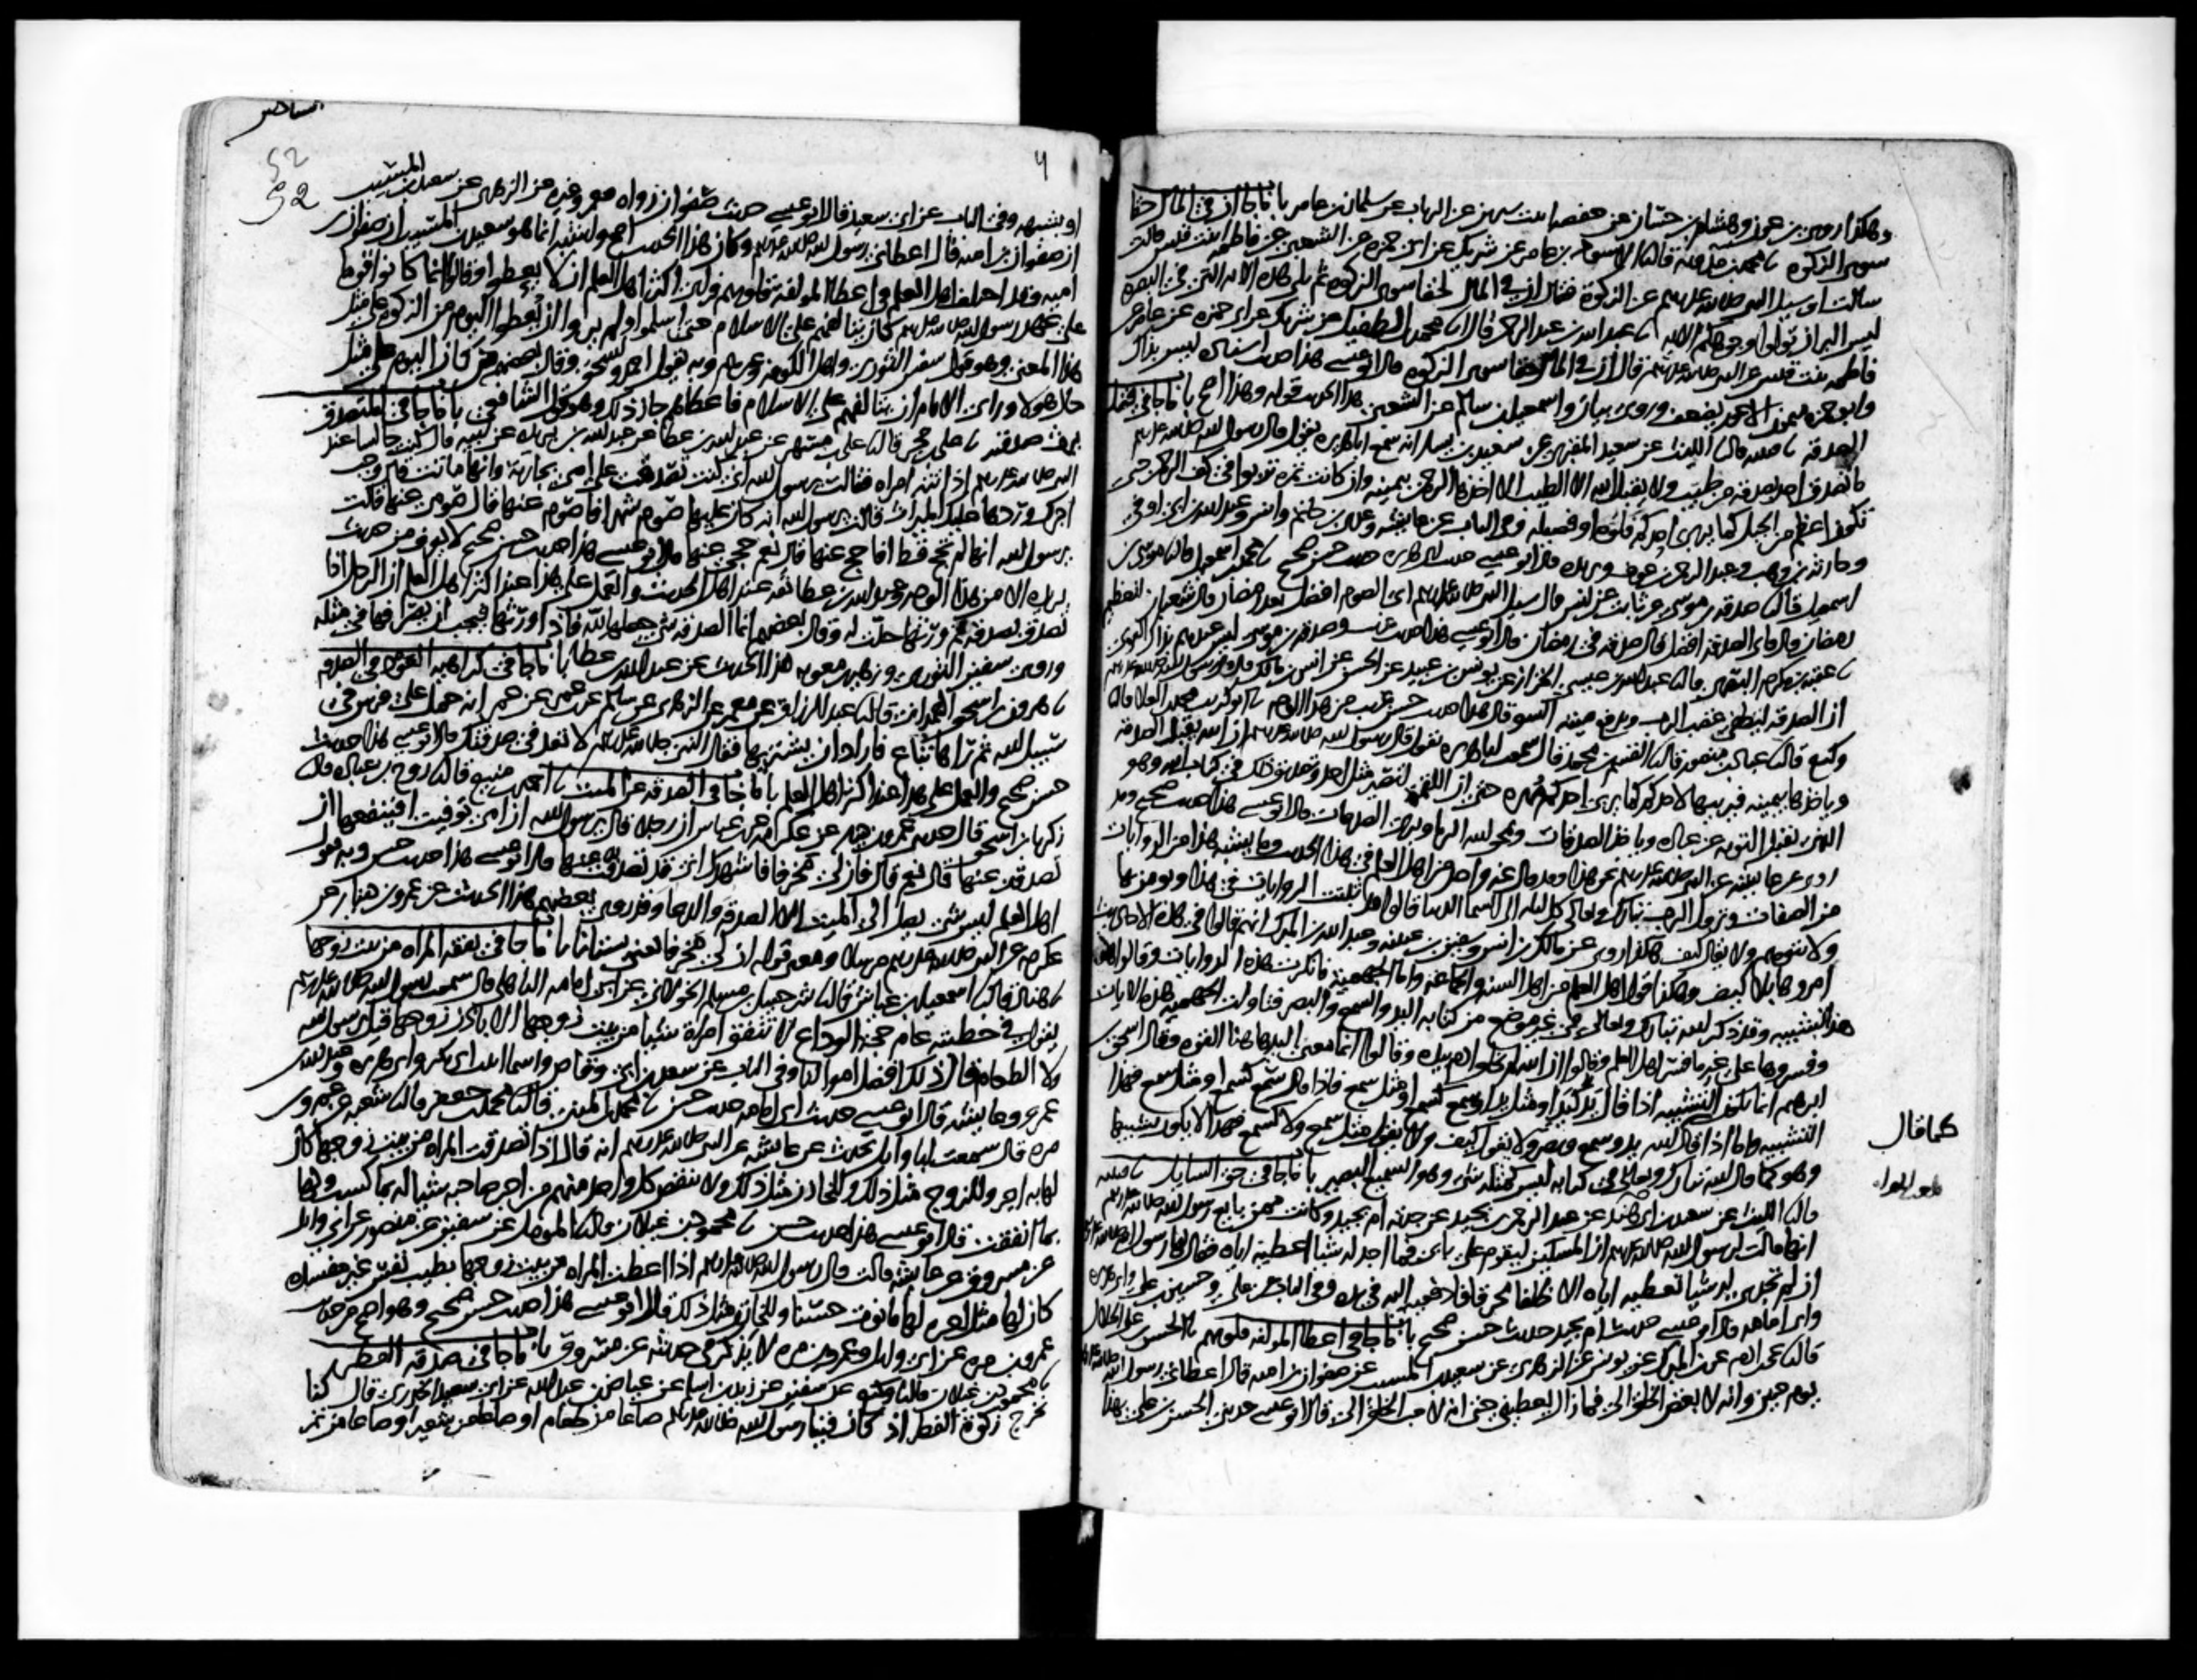 وهكذا روى بن عون وهشام بن حسان عن حفصة بنت سيرين عن الرباب عن سلمان بن عامر باب ما جا ان في المال حقا
سوى الزكوة محمد بن مدويه قال الاسود بن عامر عن شريك عن ابي حمزه عن الشعبي عن فاطمه بنت قيس قالت
سالت او سيل النبي صلى الله عليه وسلم عن الزكوة فقال ان في المال لحقا سوى الزكوة ثم تلى هذه الايه التي في البقره
ليس البر ان تولوا وجوهكم الايه عبد الله بن عبد الرحمن قال محمد بن الطفيل عن شريك عن ابي حمزه عن عامر عن
فاطمه بنت قيس عن النبي صلى الله عليه وسلم قال ان في المال حقا سوى الزكوه قال ابو عيسى هذا حديث اسناده ليس بذاك
وابو حمزه ميمون الاعور يضعف وروى بيان واسمعيل بن سالم عن الشعبي هذا الحديث قوله وهذا اصح باب ما جا في فضل
الصدقه قتيبه قال الليث عن سعيد المقبري عن سعيد بن يسار انه سمع ابا هريره يقول قال رسول الله صلى الله عليه وسلم
ما تصدق احد بصدقه من طيب ولا يقبل الله الا الطيب الا اخذها الرحمن بيمينه وان كانت تمره تربوا في كف الرحمن حتى
تكون اعظم من الجبل كما يربي احدكم فلوه او فصيله وفي الباب عن عايشه وعدي بن حاتم وانس وعبد الله بن ابي اوفى
وحارثه بن وهب وعبد الرحمن بن عوف وبريده قال ابو عيسى حديث ابي هريره حديث حسن صحيح محمد بن اسمعيل قال موسى بن
اسمعيل قال صدقه بن موسى عن ثابت عن انس قال سيل النبي صلى الله عليه وسلم اي الصوم افضل بعد رمضان قال شعبان لتعظيم
رمضان قال فاي الصدقه افضل قال صدقه في رمضان قال ابو عيسى هذا حديث غريب وصدقه بن موسى ليس عندهم بذاك القوي
عقبه بن مكرم البصري قال عبد الله بن عيسى الخزاز عن يونس بن عبيد عن الحسن عن انس بن مالك قال قال رسول الله صلى الله عليه وسلم
ان الصدقه لتطفي غضب الرب وتدفع ميته السو قال هذا حديث حسن غريب من هذا الوجه ابو كريب محمد بن العلا قال
وكيع قال عباد بن منصور قال القسم بن محمد قال سمعت ابا هريره يقول قال رسول الله صلى الله عليه وسلم ان الله يقبل الصدقه
وياخذها بيمينه فيربيها لاحدكم كما يربي احدكم مهره حتى ان اللقمه لتصير مثل احد وتصديق ذلك في كتاب الله وهو
الذي يقبل التوبه عن عباده وياخذ الصدقات ويمحق الله الربا ويربي الصدقات قال ابو عيسى هذا حديث صحيح وقد
روي عن عايشه عن النبي صلى الله عليه وسلم نحو هذا وقد قال غير واحد من اهل العلم في هذا الحديث وما يشبه هذا من الروايات
من الصفات ونزول الرب تبارك وتعالى كل ليله الى السما الدنيا قالوا قد تثبت الروايات في هذا ويومن بها
ولا يتوهم ولا يقال كيف هكذا روي عن مالك بن انس وسفين بن عيينه وعبد الله بن المبارك انهم قالوا في هذه الاحاديث
امروها بلا كيف وهكذا قول اهل العلم من اهل السنه والجماعه واما الجهميه فانكرت هذه الروايات وقالوا
هذا تشبيه وقد ذكر الله تبارك وتعالى في غير موضع من كتابه اليد والسمع والبصر فتاولت الجهميه هذه الايات
وفسروها على غير ما فسر اهل العلم وقالوا ان الله لم يخلق ادم بيده وقالوا انما معنى اليد هاهنا القوه وقال اسحق بن
ابرهيم انما يكون التشبيه اذا قال يد كيد او مثل يد او سمع كسمع او مثل سمع فاذا قال سمع كسمع او مثل سمع فهذا
التشبيه واما اذا قال الله يد وسمع وبصر ولا يقول كيف ولا يقول مثل سمع ولا كسمع فهذا لا يكون تشبيها
كما قال
وهو كما قال الله تبارك وتعالى في كتابه ليس كمثله شي وهو السميع البصير باب ما جا في حق السايل قتيبه
قال الليث عن سعيد بن ابي هند عن عبد الرحمن بن بجيد عن جدته ام بجيد وكانت ممن بايع رسول الله صلى الله عليه وسلم
انها قالت لرسول الله صلى الله عليه وسلم ان المسكين ليقوم على بابي فما اجد له شيا اعطيه اياه فقال لها رسول الله صلى الله عليه وسلم
ان لم تجدي له شيا تعطيه اياه الا ظلفا محرقا فادفعيه اليه في يده وفي الباب عن علي وحسين بن علي وابي هريره
وابي امامه قال ابو عيسى حديث ام بجيد حديث حسن صحيح باب ما جا في اعطا المولفه قلوبهم الحسن بن علي الخلال
قال يحيى بن ادم عن بن المبارك عن يونس عن الزهري عن سعيد بن المسيب عن صفوان بن اميه قال اعطاني رسول الله صلى الله عليه وسلم
يوم حنين وانه لابغض الخلق الي فما زال يعطيني حتى انه لاحب الخلق الي قال ابو عيسى حدثني الحسن بن علي بهذا
52
52
او شبهه وفي الباب عن ابي سعيد قال ابو عيسى حديث صفوان رواه معمر وغيره عن الزهري عن سعيد بن المسيب
ان صفوان بن اميه قال اعطاني رسول الله صلى الله عليه وسلم وكان هذا الحديث اصح واشبه انما هو سعيد بن المسيب ان صفوان بن
اميه وقد اختلف اهل العلم في اعطا المولفه قلوبهم فراى اكثر اهل العلم ان لا يعطوا وقالوا انما كانوا قوما
على عهد رسول الله صلى الله عليه وسلم كان يتالفهم على الاسلام حتى اسلموا ولم يروا ان يعطوا اليوم من الزكوه على مثل
هذا المعنى وهو قول سفين الثوري واهل الكوفه وغيرهم وبه يقول احمد واسحق وقال بعضهم من كان اليوم على مثل
حال هولا وراى الامام ان يتالفهم على الاسلام فاعطاهم جاز ذلك وهو قول الشافعي باب ما جا في المتصدق
يرث صدقته علي بن حجر قال علي بن مسهر عن عبد الله بن عطا عن عبد الله بن بريده عن ابيه قال كنت جالسا عند
النبي صلى الله عليه وسلم اذ اتته امراه فقالت يرسول الله اني كنت تصدقت على امي بجاريه وانها ماتت قال وجب
اجرك وردها عليك الميراث قالت يرسول الله انه كان عليها صوم شهر افاصوم عنها قال صومي عنها قالت
يرسول الله انها لم تحج قط افاحج عنها قال نعم حجي عنها قال ابو عيسى هذا حديث حسن صحيح لا يعرف من حديث
بريده الا من هذا الوجه وعبد الله بن عطا ثقه عند اهل الحديث والعمل على هذا عند اكثر اهل العلم ان الرجل اذا
تصدق بصدقه ثم ورثها حلت له وقال بعضهم انما الصدقه شي جعلها لله فاذا ورثها فيجب ان يصرفها في مثله
وروى سفين الثوري وزهير بن معويه هذا الحديث عن عبد الله بن عطا باب ما جا في كراهيه العود في الصدقه
هرون بن اسحق الهمداني قال عبد الرزاق عن معمر عن الزهري عن سالم عن بن عمر عن عمر انه حمل على فرس في
سبيل الله ثم راها تباع فاراد ان يشتريها فقال النبي صلى الله عليه وسلم لا تعد في صدقتك قال ابو عيسى هذا حديث
حسن صحيح والعمل على هذا عند اكثر اهل العلم باب ما جا في الصدقه عن الميت احمد بن منيع قال روح بن عباده قال
زكريا بن اسحق قال حدثني عمرو بن دينار عن عكرمه عن بن عباس ان رجلا قال يرسول الله ان امي توفيت افينفعها ان
تصدقت عنها قال نعم قال فان لي مخرفا فاشهدك اني قد تصدقت به عنها قال ابو عيسى هذا حديث حسن وبه يقول
اهل العلم ليس شي يصل الى الميت الا الصدقه والدعا وقد روى بعضهم هذا الحديث عن عمرو بن دينار عن
عكرمه عن النبي صلى الله عليه وسلم مرسلا ومعنى قوله ان لي مخرفا يعني بستانا باب ما جا في نفقه المراه من بيت زوجها
هناد قال اسمعيل بن عياش قال شرحبيل بن مسلم الخولاني عن ابي امامه الباهلي قال سمعت رسول الله صلى الله عليه وسلم
يقول في خطبته عام حجه الوداع لا تنفق امراة شيا من بيت زوجها الا باذن زوجها قيل يرسول الله
ولا الطعام قال ذلك افضل اموالنا وفي الباب عن سعد بن ابي وقاص واسما ابنه ابي بكر وابي هريره وعبد الله بن
عمرو وعايشه قال ابو عيسى حديث ابي امامه حديث حسن محمد بن المثنى قال محمد بن جعفر قال شعبه عن عمرو بن
مره قال سمعت ابا وايل يحدث عن عايشه عن النبي صلى الله عليه وسلم انه قال اذا تصدقت المراه من بيت زوجها كان
لها به اجر وللزوج مثل ذلك وللخازن مثل ذلك ولا ينقص كل واحد منهم من اجر صاحبه شيا له بما كسب ولها
بما انفقت قال ابو عيسى هذا حديث حسن محمود بن غيلان قال المومل عن سفين عن منصور عن ابي وايل
عن مسروق عن عايشه قالت قال رسول الله صلى الله عليه وسلم اذا اعطت المراه من بيت زوجها بطيب نفس غير مفسده
كان لها مثل اجره لها ما نوت حسنا وللخازن مثل ذلك قال ابو عيسى هذا حديث حسن صحيح وهو اصح من حديث
عمرو بن مره عن ابي وايل وعمرو بن مره لا يذكر في حديثه عن مسروق باب ما جا في صدقه الفطر
محمود بن غيلان قال وكيع عن سفين عن زيد بن اسلم عن عياض بن عبد الله عن ابي سعيد الخدري قال كنا
نخرج زكوة الفطر اذ كان فينا رسول الله صلى الله عليه وسلم صاعا من طعام او صاعا من شعير او صاعا من تمر